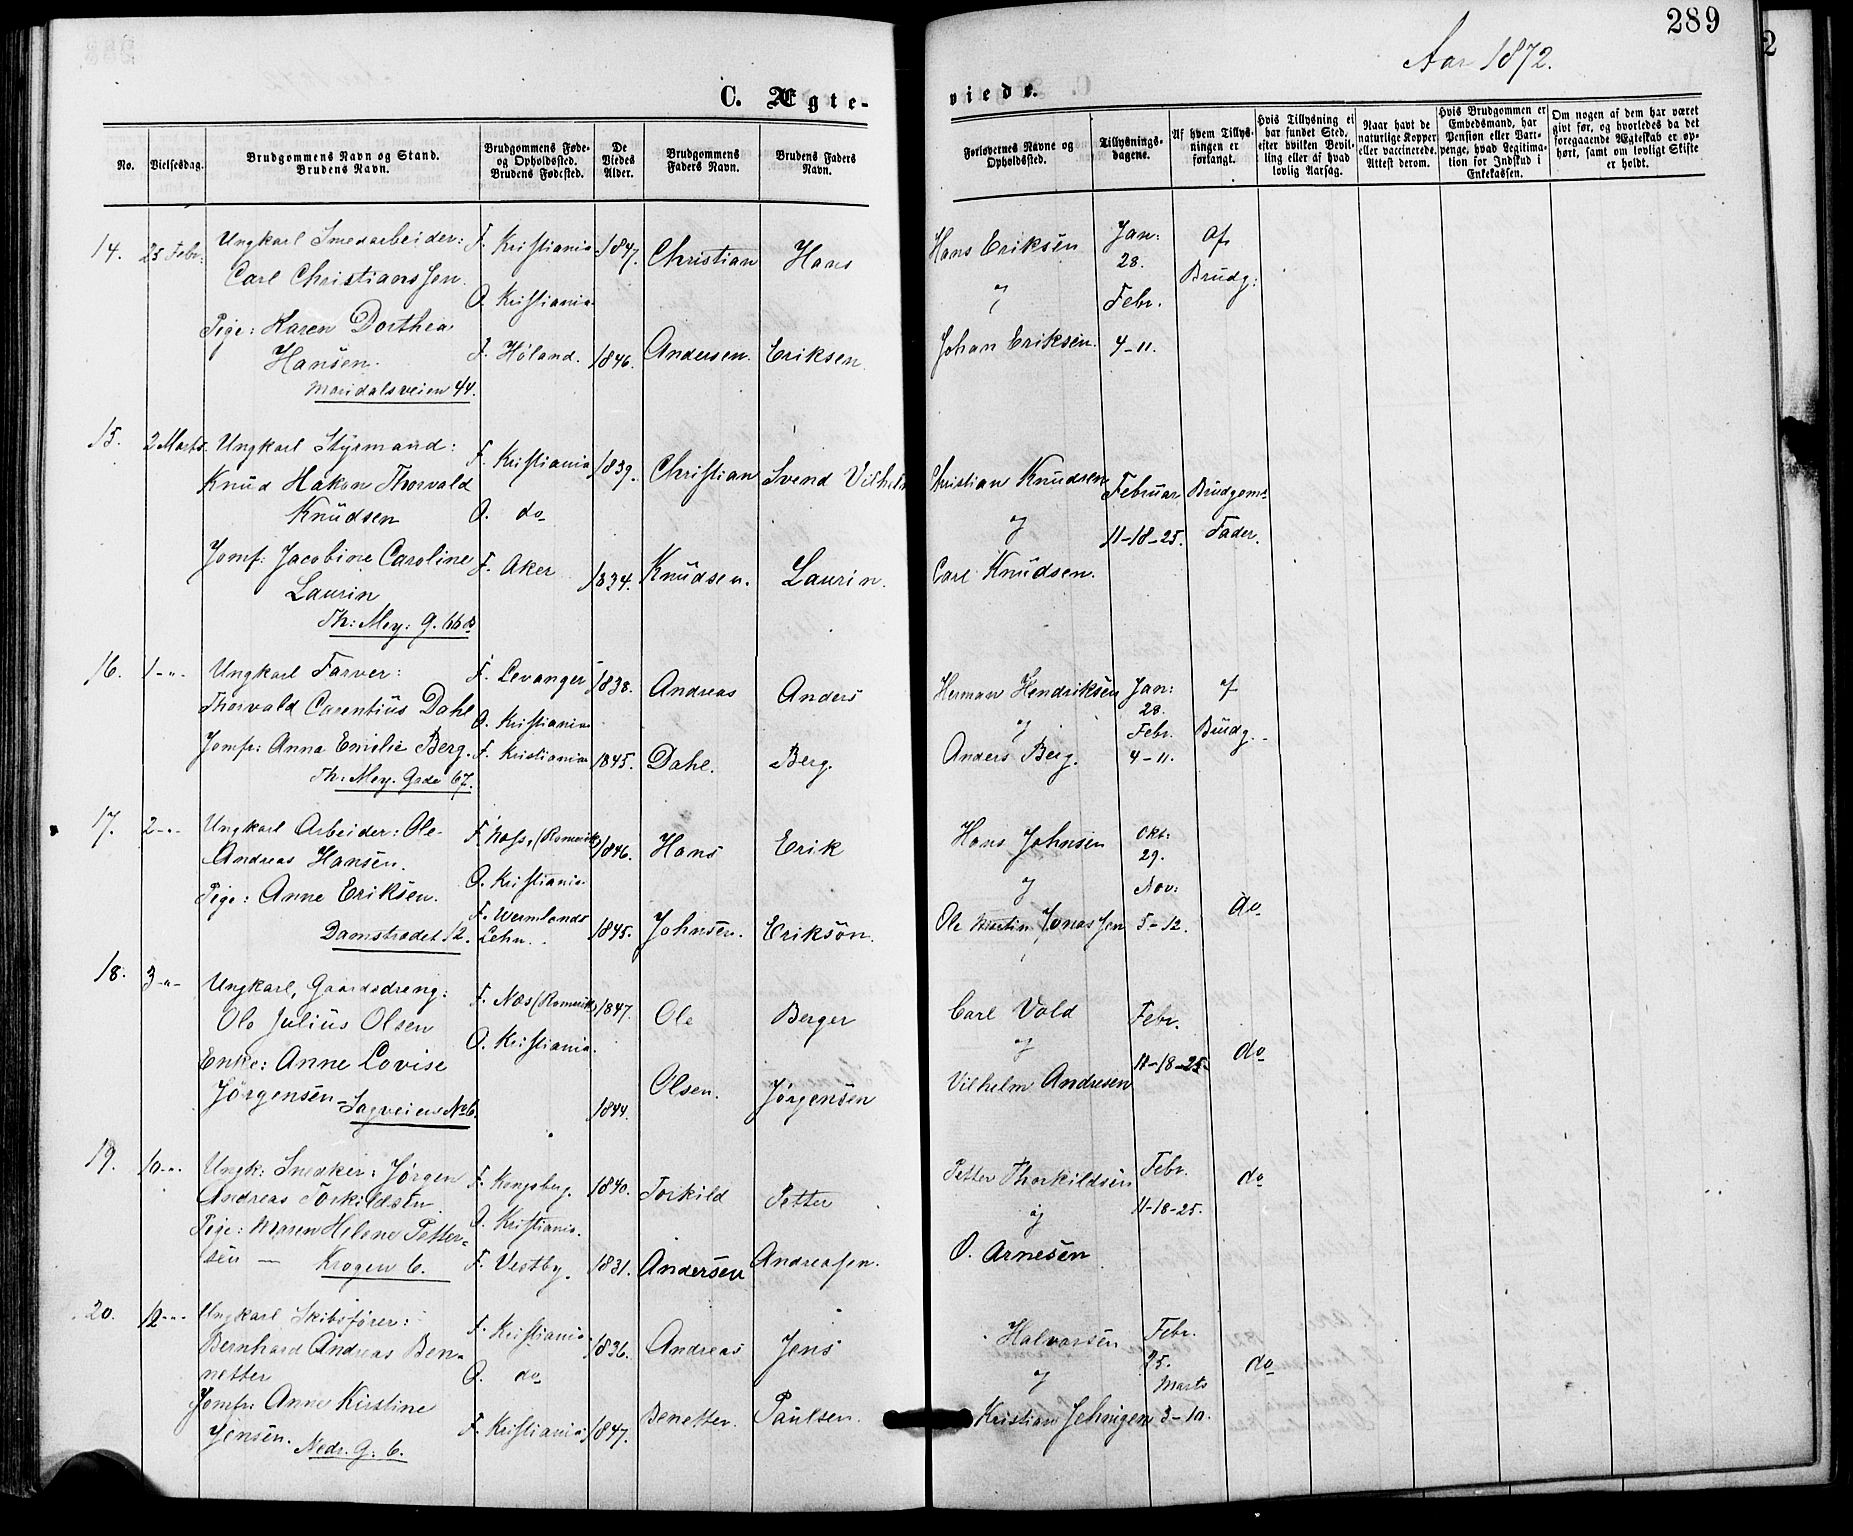 289
Aar 1872.
C. Ægte-
viede.
No.
Vielsesdag.
Brudgommens Navn og Stand.
Brudens Navn.
Brudgommens Føde-
og Opholdssted.
Brudens Fødested.
De
Viedes
Alder.
Brudgommens
Faders Navn.
Brudens Faders
Navn.
Forlovernes Navne og
Opholdssted.
Tillysnings-
dagene.
Af hvem Tillys-
ningen er
forlangt.
Hvis Tillysning ei
har fundet Sted,
efter hvilken Bevil-
ling eller af hvad
lovlig Aarsag.
Naar havt de
naturlige Kopper
eller vaccinerede.
Attest derom.
Hvis Brudgommen er
Embedsmand, har
Pension eller Vart-
penge, hvad Legitima-
tion for Indskud i
Enkekassen.
Om nogen af dem har været
givt før, og hvorledes da det
foregaaende Ægteskab er op-
hørt, samt om lovligt Skifte
er holdt.
14. 25 Febr: Ungkarl Smedarbeider: F. Kristiania 1847. Christian Hans Hans Eriksen Jan: af
Carl Christianssen. 28. Brudg:
O. Kristiania og Febr.
Pige: Karen Dorthea
Hansen. F. Høland. 1846. Andersen. Eriksen. Johan Eriksen. 4-11.
Maridalsveien 44.
15. 2 Marts. Ungkarl Styrmand: F. Kristiania 1839. Christian Svend Vilhelm Christian Knudsen Februar Brudgoms
Knud Haken Thorvald
Knudsen O. do og 11-18-25. Fader.
Jomf: Jacobine Caroline F. Aker 1834. Knudsen. Laurin. Carl Knudsen.
Laurin
Th: Mey: G. 66
16. 1-"- Ungkarl Farver: F. Levanger 1838. Andreas Anders Herman Hendriksen Jan: af
Thorvald Carentius Dahl 28.
O. Kristiania og Febr. Brudg.
Jomfr: Anna Emilie Berg. F. Kristiania 1845. Dahl. Berg. Anders Berg. 4-11.
Th. Mey. Gade 67.
17. 2-"- Ungkarl Arbeider: Ole F. Næss, (Romerike) 1846. Hans Erik Hans Johnsen Okt:
Andreas Hansen. 29.
O. Kristiania og Nov:
Pige: Anne Eriksen. F. Wermlands
Lehn. 1845. Johnsen. Eriksön. Ole Martin Jonassen 5-12. do
Damstrædet 12.
18. 3-"- Ungkarl, Gaardsdreng: F. Næs (Romerike) 1847. Ole Berger Carl Vold Febr.
Ole Julius Olsen O. Kristiania. og
Enke: Anne Lovise 11-18-25. do
Jörgensen - Sagveien No 6 1844. Olsen. Jørgensen Vilhelm Andresen
19. 10-"- Ungk: Snedker: Jørgen F. Kongsberg. 1840. Torkild Petter Petter Thorkildsen Febr. do
Andreas Torkildsen O. Kristiania. og 11-18-25.
Pige: Maren Helene Petter-
sen — Krogen 6. F. Vestby. 1831. Andersen Andreassen. O. Arnesen
20. 12-"- Ungkarl Skibsfører: F. Kristiania 1836. Andreas Jens Halvorsen Febr.
Bernhard Andreas Ben-
netter O. do og 25. do
Marts
Jomfr: Anne Kirstine
Jensen. F. Kristiania 1847. Benetter. Paulsen. Kristian 3-10.
Nedr. G. 6.